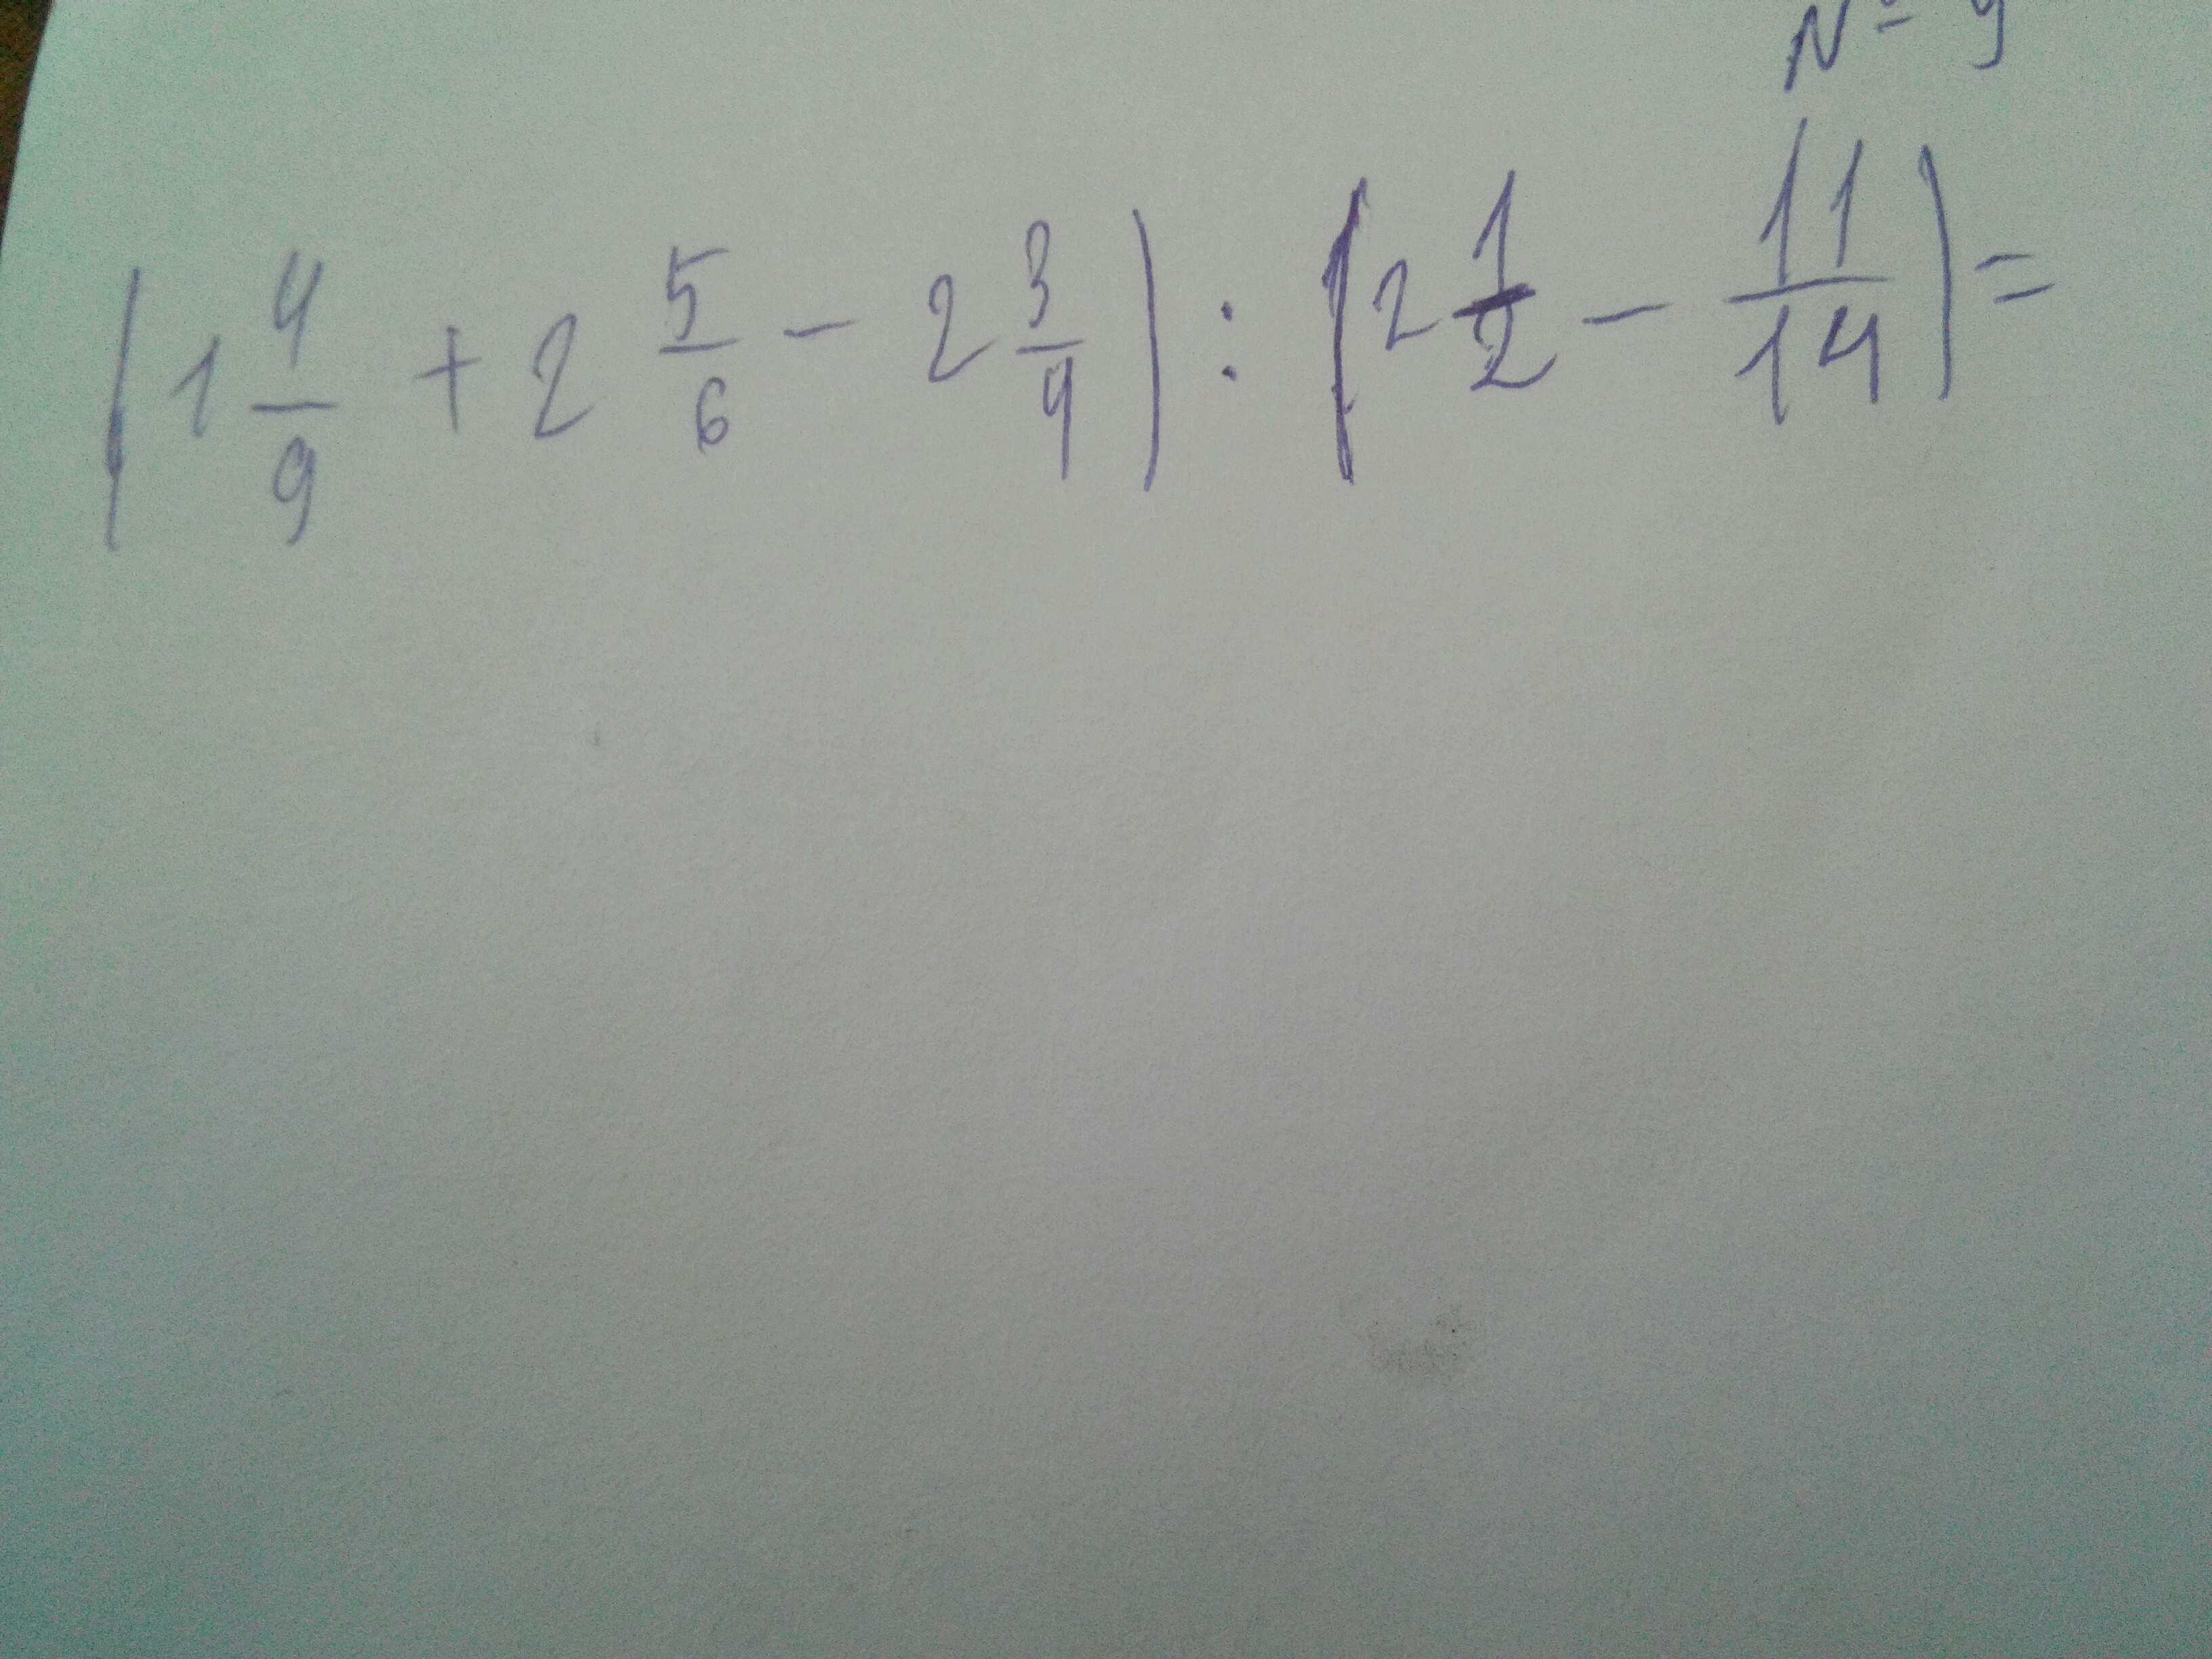 № 9
(1 4/9 + 2 5/6 - 2 3/4) : (2 1/2 - 11/14) =